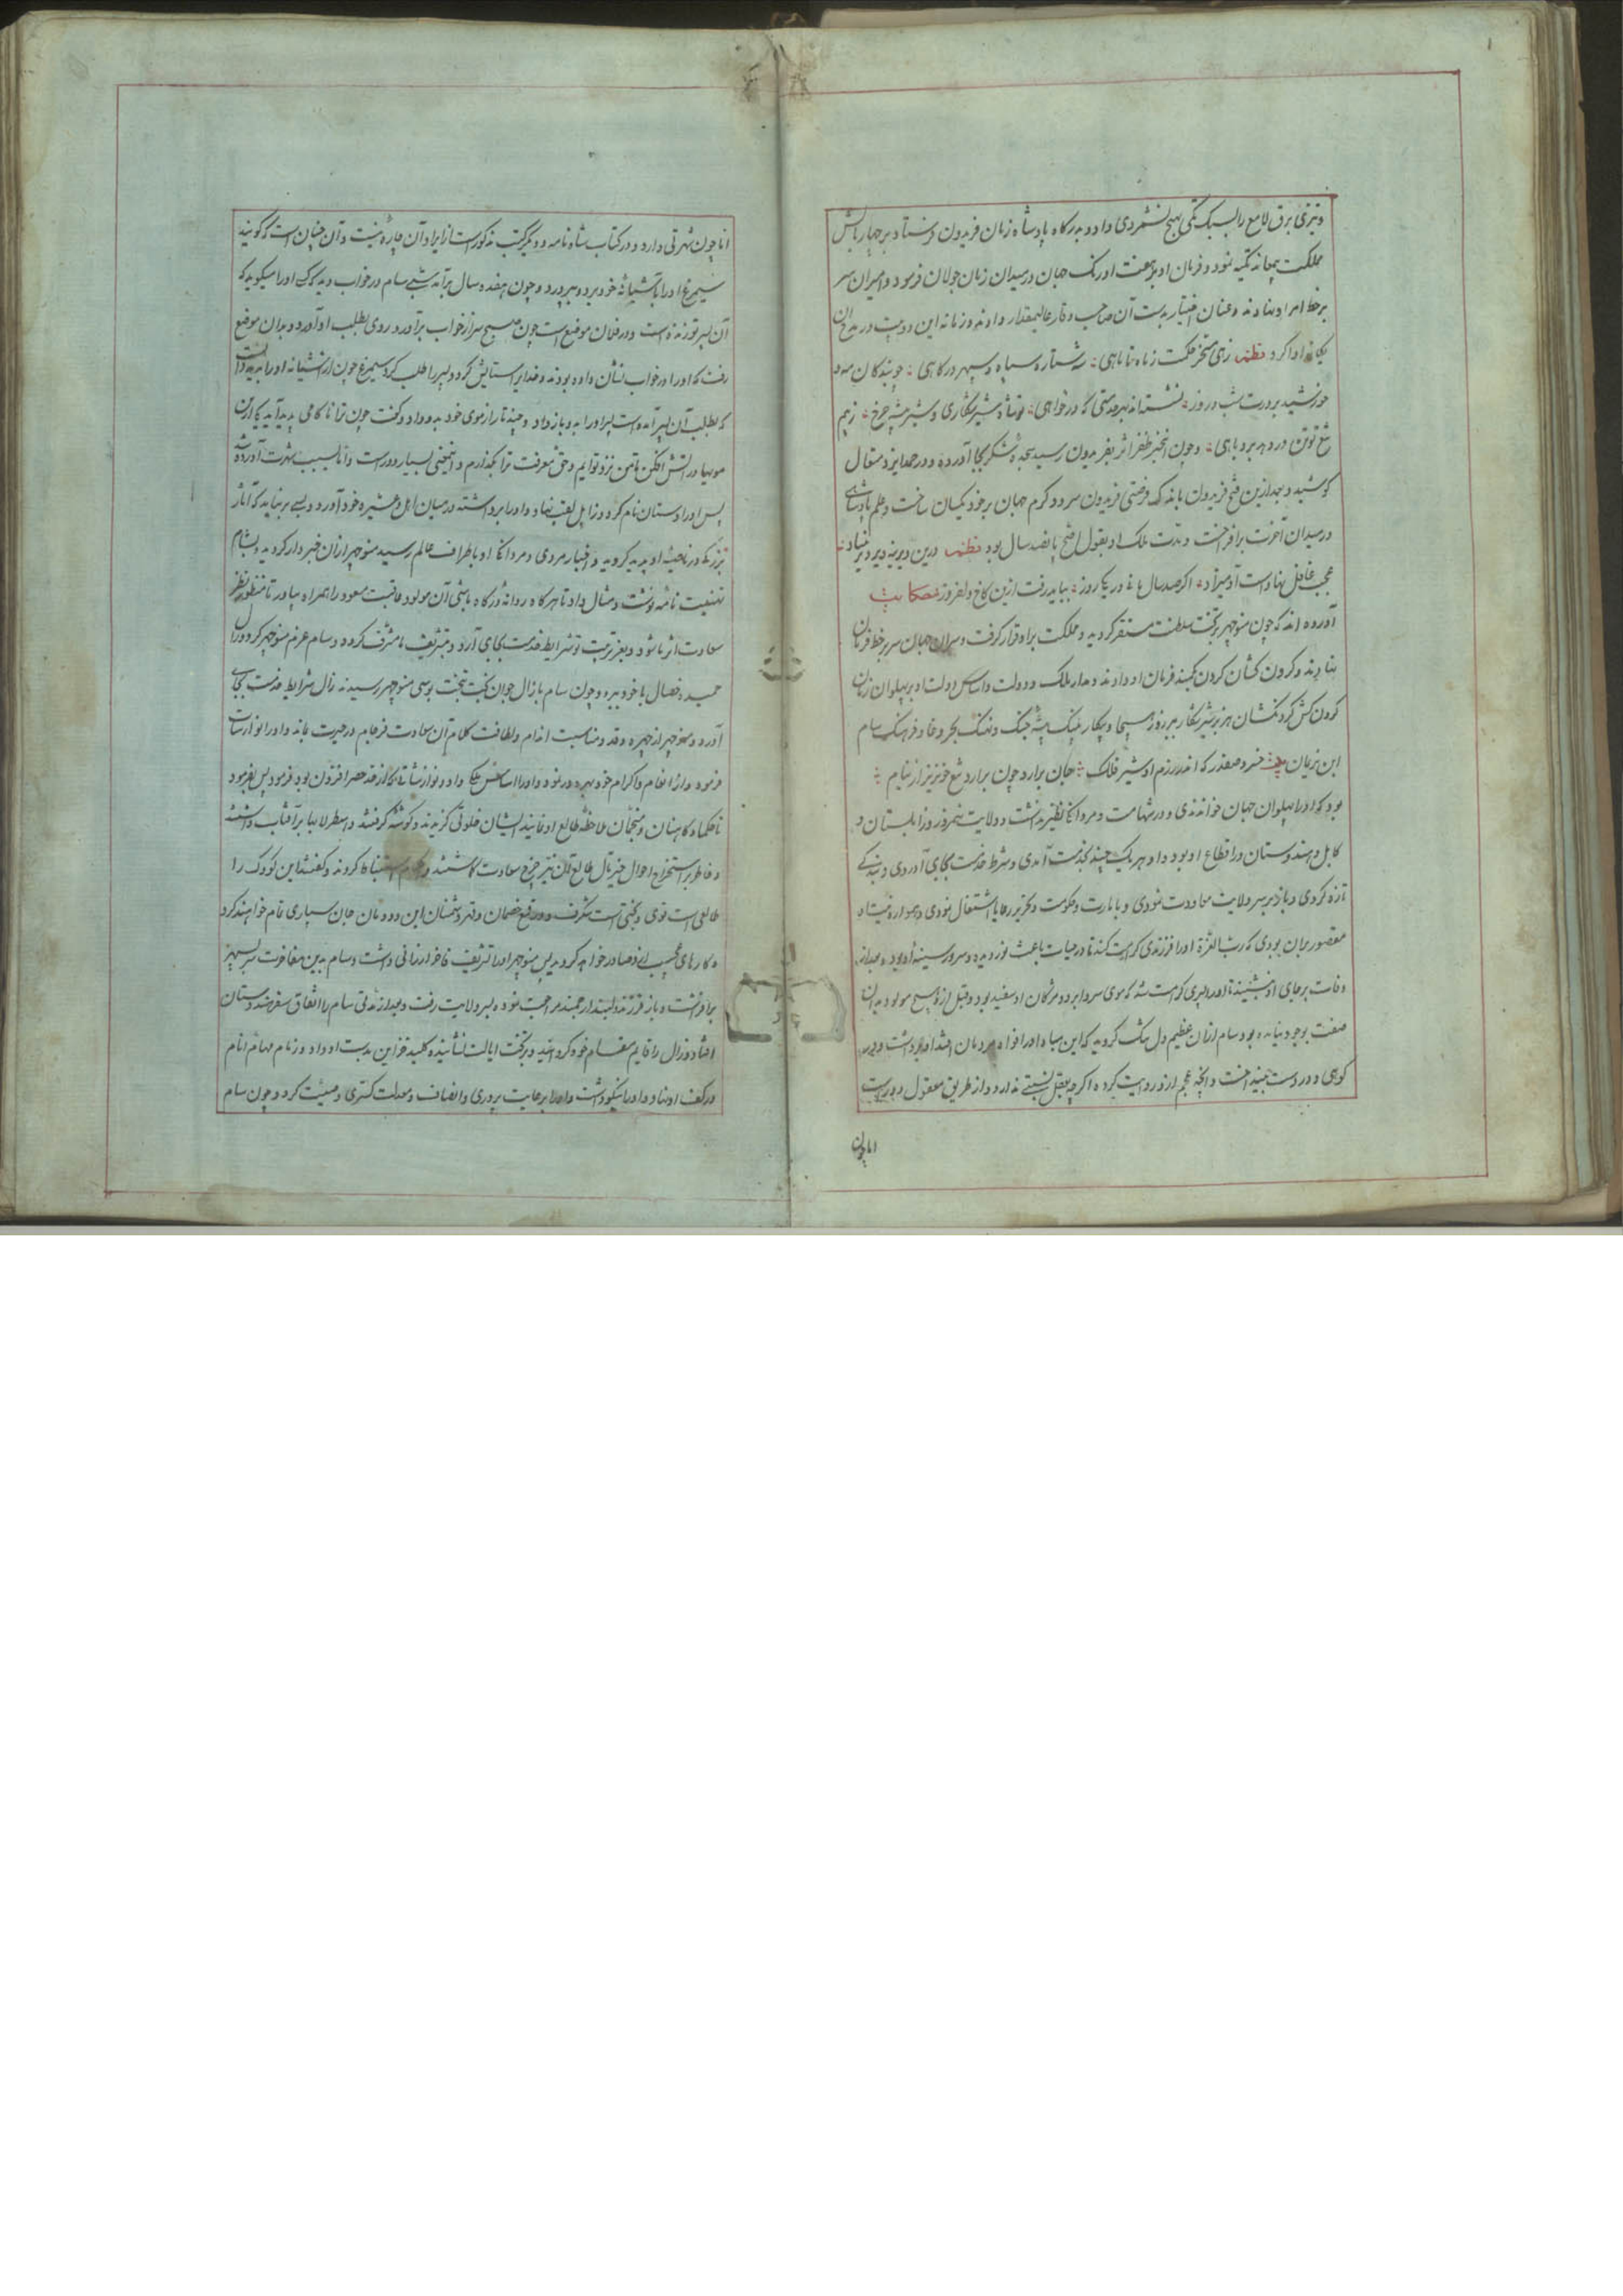 و تیزی برق لامع را بسبک تکی بهیچ نشمردی داد و بدرگاه پادشاه زمان فریدون فرستاد و بر چهار بالش
مملکت بجانه تکیه نمود و فرمان او در هفت اورنگ جهان در میدان زمان جولان فرمود و امیران سر
بر خط امر او نهادند و عنان اختیار بدست آن صاحب وقار عالیمقدار دادند و زمانه این دو بیت در مدح آن
یگانه ادا کرد نظم زهی مسخر حکمت زماه تا ماهی شه ستاره سپاه و سپهر درگاهی جو بندگان مه و
خورشید بر درت شب و روز نشسته اند بهر خدمتی که در خواهی شیر شکاری و شیر بیشه چرخ ز بیم
تیغ تو تن در دهد بروباهی و چون این خبر ظفر اثر بفریدون رسید سجده شکر بجا آورده و در حمد ایزد متعال
کوشید و بعد ازین فتح فریدون باندک فرصتی فریدون سرد و گرم جهان بر خود یکسان ساخت و علم پادشاهی
در میدان آخرت برافراخت و مدت ملک او بقول اصح پانصد سال بود نظم درین دیرینه دیر دیر بنیاد
عجب غافل نهادست آدمیزاد اگر صد سال مانی ور یکی روز بباید رفت ازین کاخ دلفروز حکایت
آورده اند که چون منوچهر بر تخت سلطنت مستقر گردید و مملکت بر او قرار گرفت و سران جهان سر بر خط فرمان
نهادند و گردن کشان گردن بکمند فرمان او دادند و مدار ملک و دولت و اساس دولت او بر پهلوان زمان
گردن کش گردنکشان هزبر شیر شکار ببر روز هیجا و پیکار پلنگ بیشه جنگ و نهنگ بحر وغا و فرهنگ سام
ابن نریمان بیت خسرو صفدر که اندر رزم او شیر فلک جان برآرد چون برآرد تیغ خونریز از نیام
بود که او را پهلوان جهان خواندندی و در شهامت و مردانگی نظیر نداشت و ولایت نیمروز و زابلستان و
کابل و هندوستان در اقطاع او بود و او هر یک چند بخدمت آمدی و شرط خدمت بجای آوردی و بندگی
تازه کردی و باز بر سر ولایت معاودت نمودی و بامارت و حکومت و رعایا اشتغال نمودی و همواره نیت او
مقصور بران بودی که رب العزة او را فرزندی کرامت کند تا در حیات باعث نور دیده و سرور سینه او بود و بعد از
وفات بر جای او نشیند تا او را پسری کرامت شد که موی سر و ابرو و مژگان او سفید بود و قبل ازو هیچ مولود بدان
صفت بوجود نیامده بود سام ازان عظیم دل تنگ گردید که این مبادا در افواه مردمان افتد او را برداشت و در
کوهی دوردست بینداخت و آنچه عجم ازو روایت کرده اگرچه بعقل نسبتی ندارد و از طریق معقول دورست
اما چون
اما چون شهرتی دارد و در کتاب شاه نامه و دیگر کتب مذکورست از ایراد آن چاره نیست و آن چنان است که گویند
سیمرغ او را بآشیانه خود برد و بپرورد و چون هفده سال برآمد شبی سام در خواب دید که کسی او را میگوید که
آن پسر تو زنده است و در فلان موضع است چون صبح سر از خواب برآورد و روی بطلب او آورد و بدان موضع
رفت که او را در خواب نشان داده بودند و خدایرا ستایش کرد و پسر را طلب کرد سیمرغ چون از آشیانه او را بدید دانست
که بطلب آن پسر آمده است پسر او را بدو باز داد و چند تار از موی خود بدو داد و گفت چون ترا ناکامی پدید آید یکی ازین
مویها در آتش افکن تا من نزد تو آیم و حق معرفت ترا بگذارم و اینمعنی بسیار دورست و اما بسبب شهرت آورده شد
پس او را دستان نام کرد و زال لقب نهاد و او را برداشته در میان اهل و عشیره خود آورد و بسی بر نیامد که آثار
بزرگی در ناصیه او پدید گردید و اخبار مردی و مردانگی او باطراف عالم رسید منوچهر ازان خبردار گردید و بسام
تهنیت نامه نوشت و مثال داد تا هرگاه روانه درگاه باشی آن مولود عاقبت محمود را همراه بیاور تا منظور نظر
سعادت اثر ما شود و بعز تربیت و شرایط خدمت بجای آرد و بتشریف ما مشرف گردد و سام عزم منوچهر کرد و زال
حمیده خصال با خود ببرد و چون سام با زال جوان بخت بتخت بوسی منوچهر رسیدند زال شرایط خدمت بجای
آورد و منوچهر از چهره و قد و مناسبت اندام و لطافت کلام آن سعادت فرجام در حیرت بماند و او را نوازشات
فرمود و از انعام و اکرام خود بهره ور نمود و او را داد و نوازشاتی که از حد حصر افزون بود فرمود پس بفرمود
تا حکما و کاهنان و منجمان ملاحظه طالع او نمایند ایشان خلوتی گزیدند و گوشه گرفتند و اسطرلابها بر آفتاب داشتند
و خاطر بر استخراج احوال خیر مآل طالع آن نیر چرخ سعادت گماشتند و استنباط کردند و گفتند این کودک را
طالعی است قوی و بختی است شگرف و در دفع خصمان و قهر دشمنان این دودمان جان سپاری تمام خواهند کرد
و کارهای عجیب ازو صادر خواهد گردید پس منوچهر او را تشریف فاخر ارزانی داشت و سام بدین مفاخرت سر بسپهر
برافراشت و باز فرزند دلبند ارجمند مراجعت نموده بسر ولایت رفت و بعد از مدتی سام را اتفاق سفر هندوستان
افتاد و زال را قایم مقام خود گردانید و بر تخت ایالت نشانیده کلید خزاین بدست او داد و زمام مهام انام
در کف او نهاد و او را نیکو داشت و او را برعایت پروری و انصاف و معدلت گستری وصیت کرد و چون سام